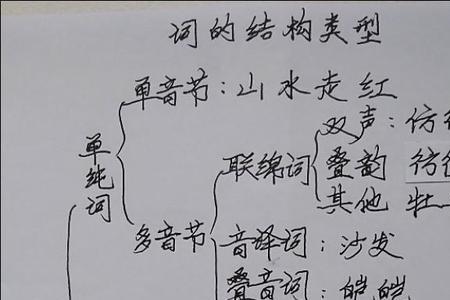 词的结构类型
单音节:山 水 走 红
单纯词
双声:仿
联绵词 叠韵 彷
其他 牡
多音节 音译词:沙发
叠音词:皑皑